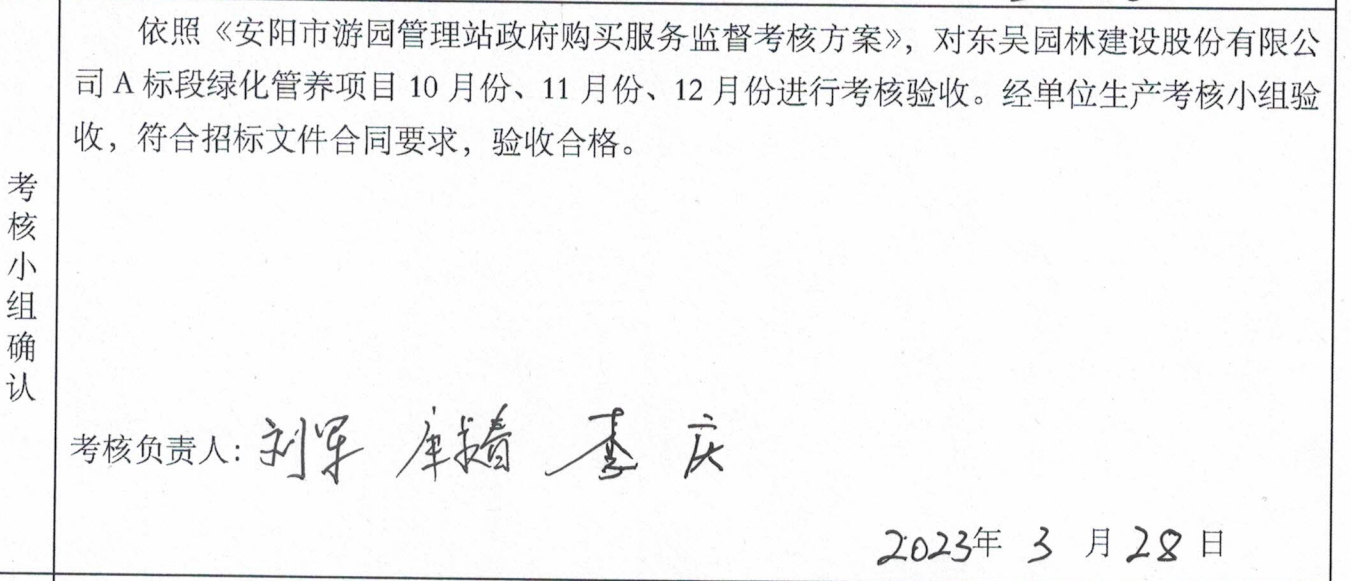 依照《安阳市游园管理站政府购买服务监督考核方案》，对东吴园林建设股份有限公
司A标段绿化管养项目10月份、11月份、12月份进行考核验收。经单位生产考核小组验
收，符合招标文件合同要求，验收合格。
考核小组确认
考核负责人：刘军 李庆
2023年3月28日